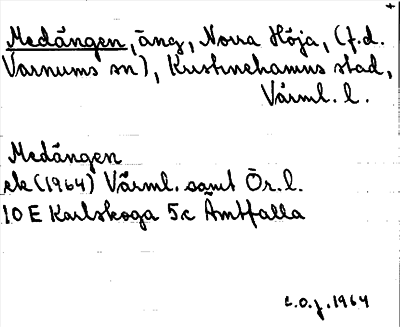 +
Medängen, äng, Norra Höja, (f.d.
Varnums sn), Kristinehamns stad,
Värml. l.
Medängen
ek (1964) Värml. samt Ör. l.
10 E Karlskoga 5c Åmtfalla
c.o.j. 1964